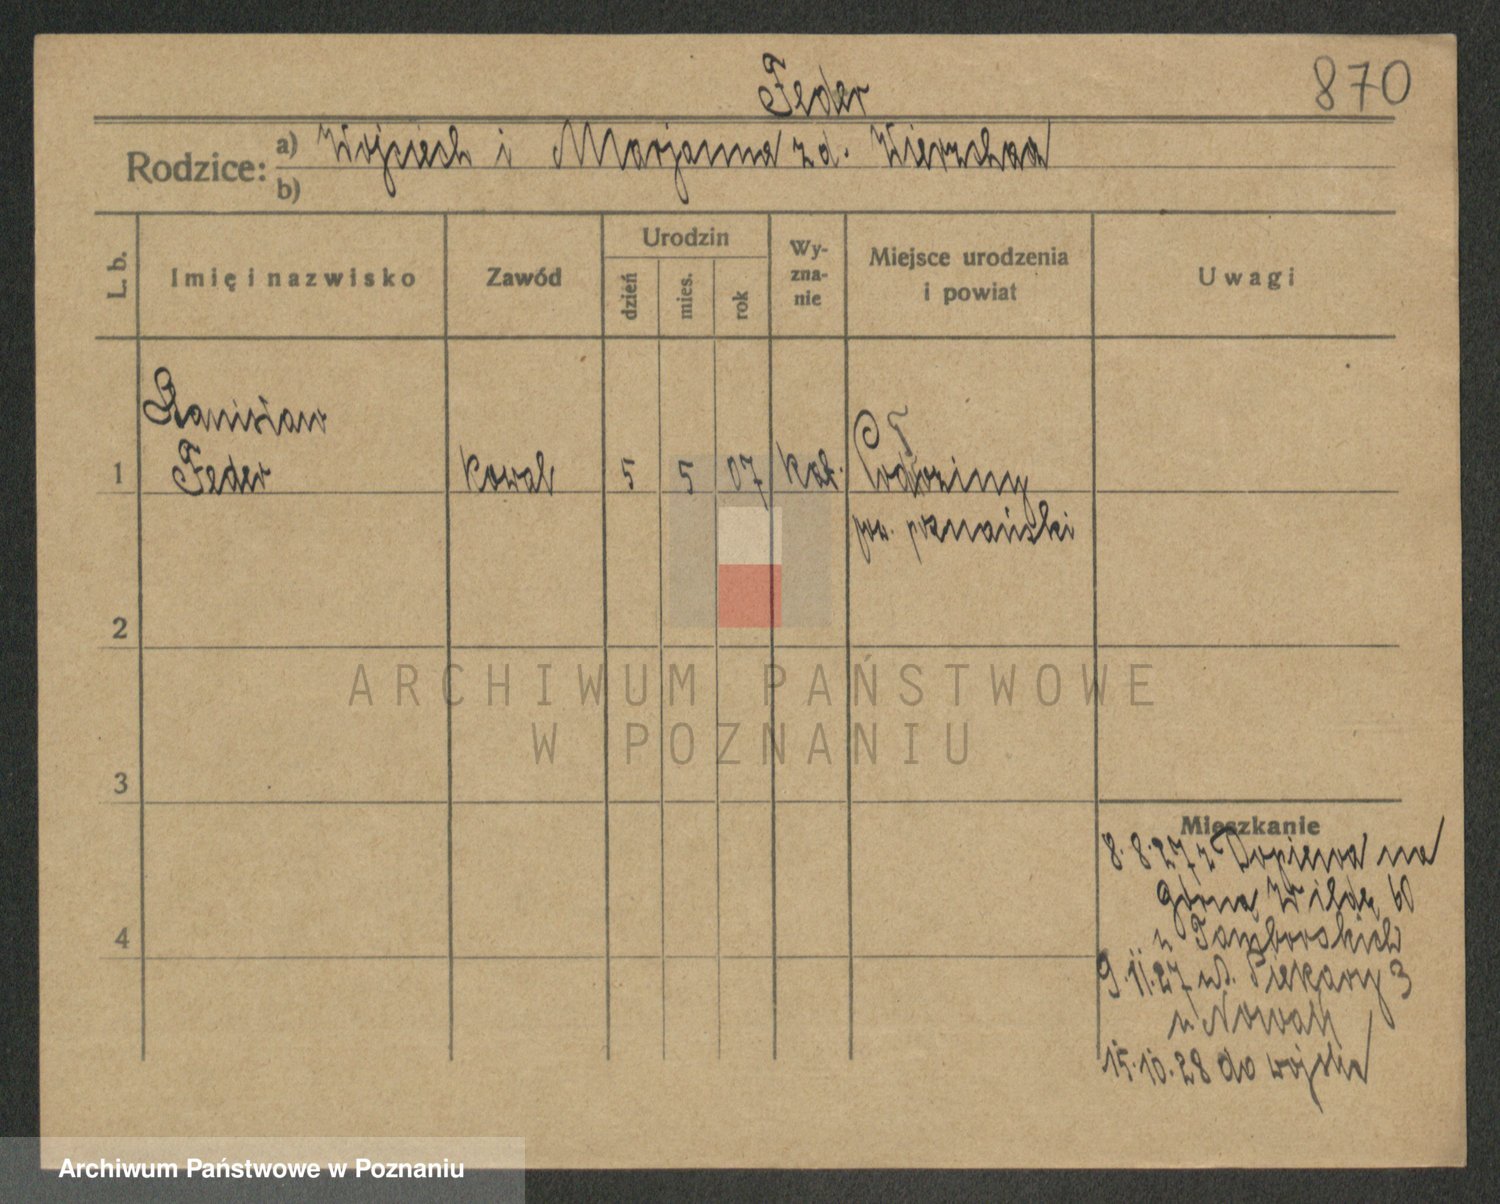 870
Feder
Rodzice: a) Wojciech i Marjanna z d.
b)
L. b.
Imię i nazwisko
Zawód
Urodzin
dzień
mies.
rok
Wy-
zna-
nie
Miejsce urodzenia
i powiat
Uwagi
Stanisław
1 Feder kowal 5 5 07 kat.
pow. poznański
2
3
4
ARCHIWUM PAŃSTWOWE
W POZNANIU
Mieszkanie
8.8.27 z Dopiewa na
Górną Wildę 60
u
9.11.27 ul. Piekary 3
u Nowak
15.10.28 do wojska
Archiwum Państwowe w Poznaniu